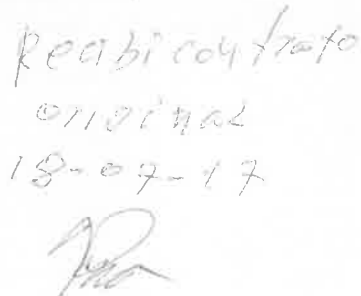 Recibi contrato
original
18-07-17